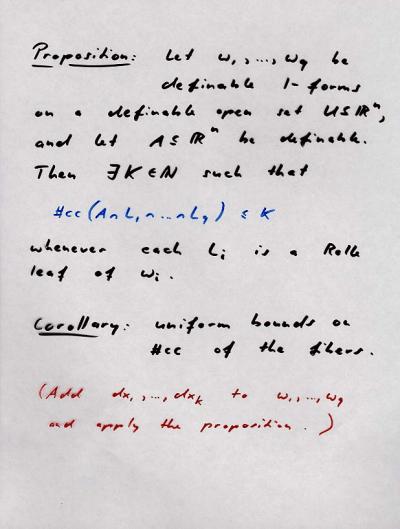 Proposition: Let ω₁,...,ω_q be
definable 1-forms
on a definable open set U⊆ℝⁿ,
and let A⊆ℝⁿ be definable.
Then ∃K∈ℕ such that
#cc(A∩L₁∩...∩L_q) ≤ K
whenever each Lᵢ is a Rolle
leaf of ωᵢ.
Corollary: uniform bounds on
#cc of the fibers.
(Add dx₁,...,dx_k to ω₁,...,ω_q
and apply the proposition.)